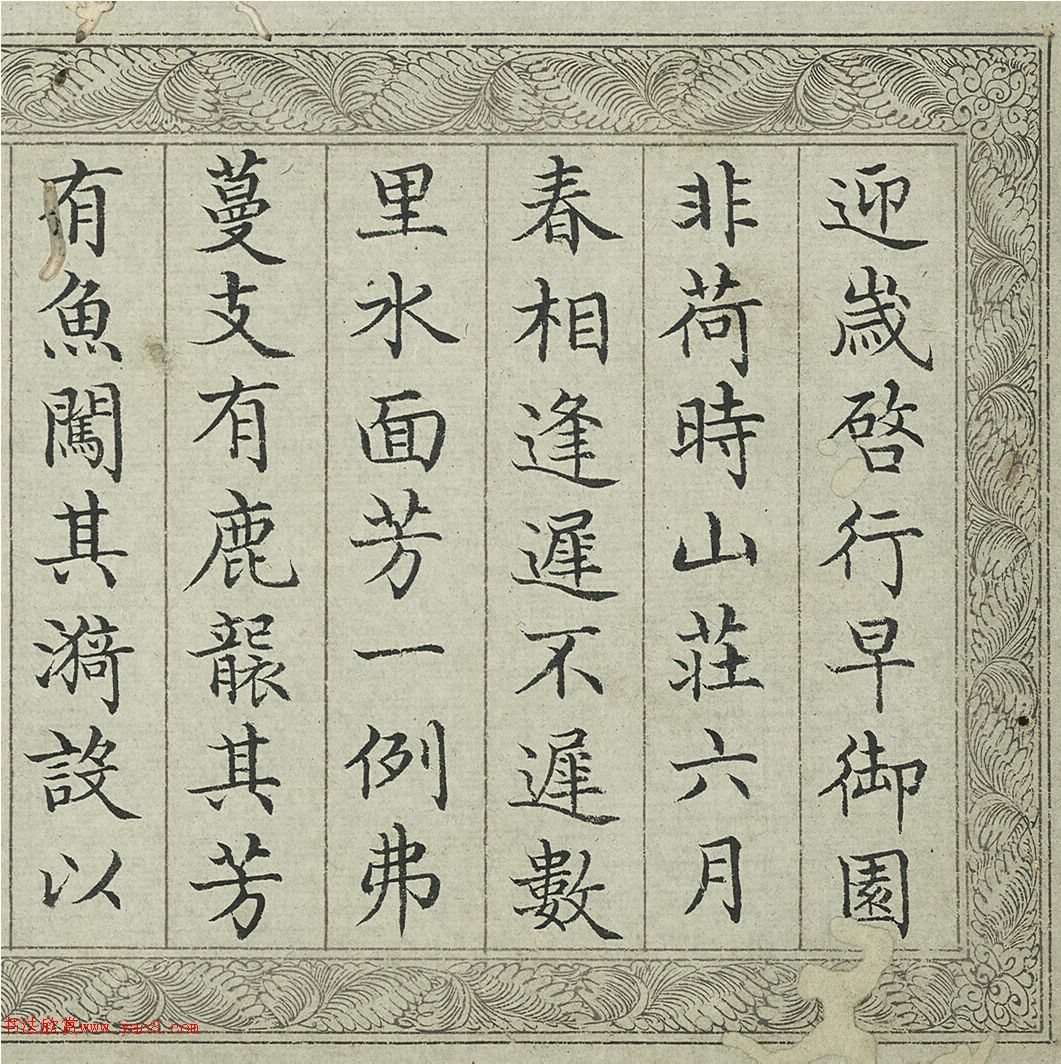 迎歲啓行早御園
非荷時山莊六月
春相逢遲不遲數
里水面芳一例弗
蔓支有鹿襲其芳
有魚闖其漪設以
书法欣赏www.yac8.com